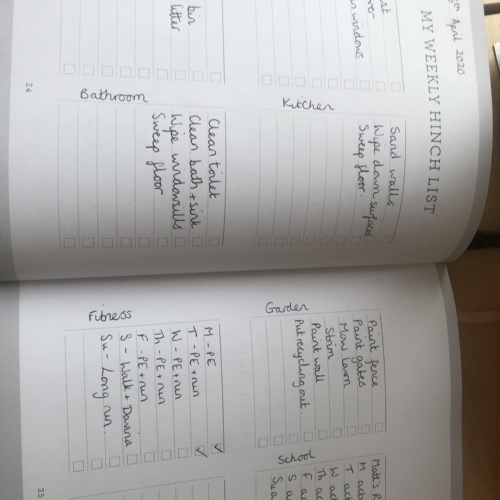 April 2020
MY WEEKLY HINCH LIST
windows
bin
litter
Kitchen
Sand walls
Wipe down surfaces
Sweep floor.
Bathroom
Clean toilet
Clean bath + sink
Wipe windowsills
Sweep floor
24
Garden
Paint fence
Paint gates
Mow lawn
Strim
Paint wall
Put recycling out
Fitness
M - PE
T - PE + run
W - PE + run
Th - PE + run
F - PE + run
S - Walk + Davina
Su - Long run
School
Matt's
M
T
W
Th
F
S
Su
25